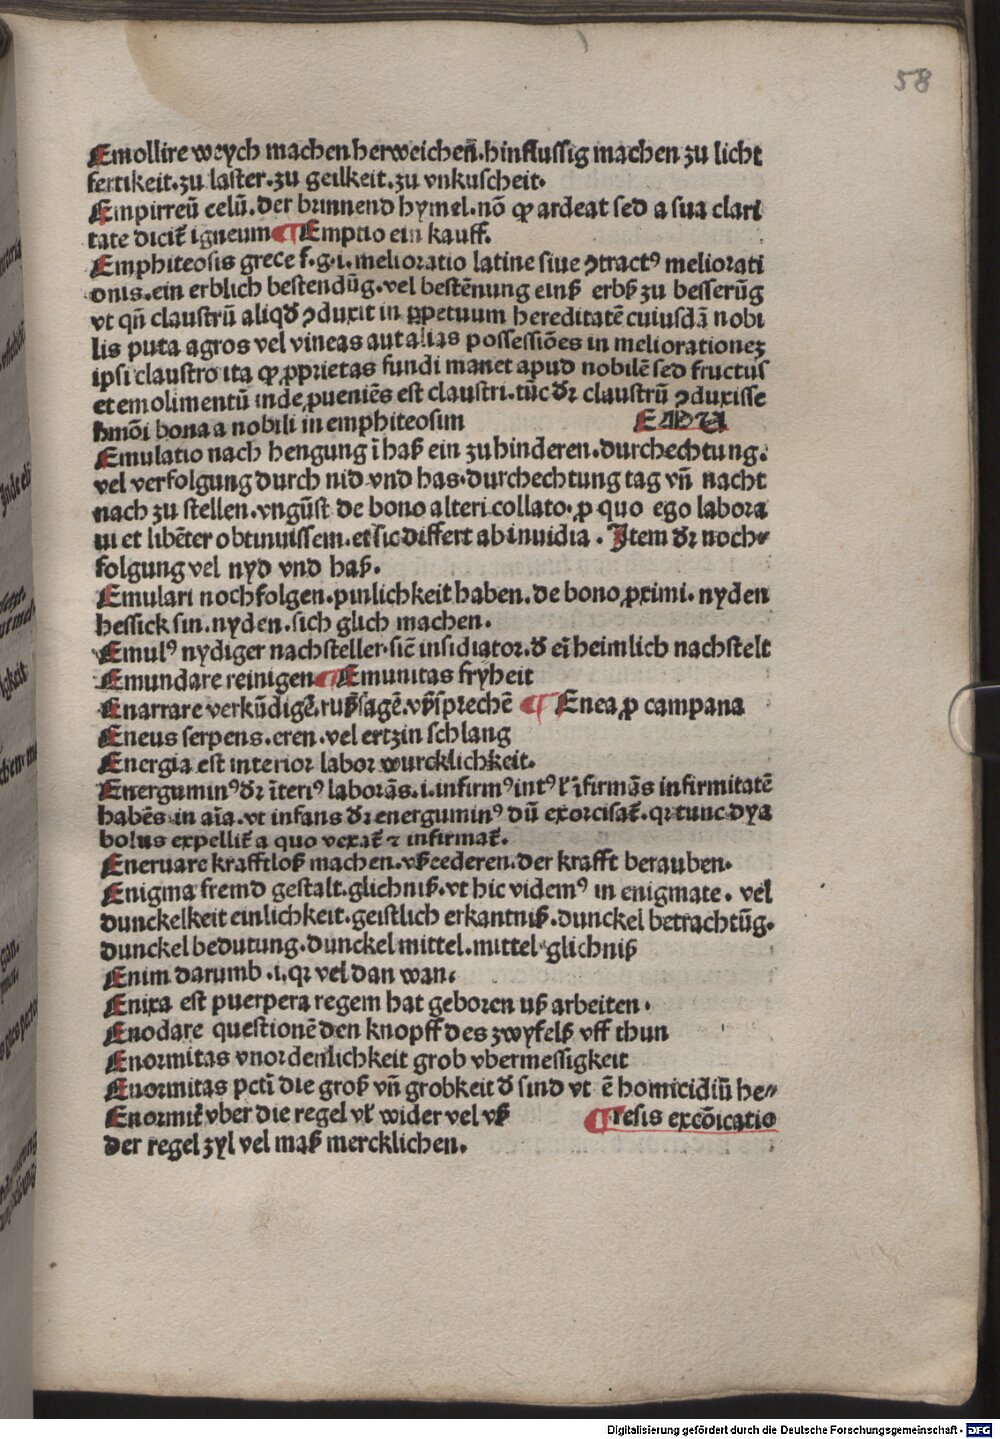 58
Emollire weych machen herweichen̄.hinflussig machen zu licht
fertikeit.zu laster.zu geilkeit.zu vnkuscheit.
Empirreū celū.der brinnend hymel.nō ꝙ ardeat sed a sua clari
tate dicit᷑ igneum ¶ Emptio ein kauff.
Emphiteosis grece f.g.i. melioratio latine siue ꝯtractꝰ meliorati
onis.ein erblich bestendūg.vel bestēnung einß erbß zu besserūg
vt qn̄ claustrū aliqđ ꝯduxit in ꝑpetuum hereditatē cuiusdā nobi
lis puta agros vel vineas aut alias possessiōes in meliorationeꝫ
ipsi claustro ita ꝙ ꝓprietas fundi manet apud nobilē sed fructus
et emolimentū inde ꝓueniēs est claustri.tūc dr̄ claustrū ꝯduxisse
hmōi bona a nobili in emphiteosim
EMU
Emulatio nach hengung ī haß ein zu hinderen.durchechtung.
vel verfolgung durch nid vnd has.durchechtung tag vn̄ nacht
nach zu stellen.vngūst de bono alteri collato.ꝓ quo ego labora
ui et libēter obtinuissem.et sic differt ab inuidia. Item dr̄ noch⸗
folgung vel nyd vnd haß.
Emulari nochfolgen.pinlichkeit haben.de bono ꝓximi.nyden
hessick sin.nyden.sich glich machen.
Emulꝰ nydiger nachsteller.sic̄ insidiator.đ ei heimlich nachstelt
Emundare reinigen ¶ Emunitas fryheit
Enarrare verkūdigē.rußsagē.vßsprechē ¶ Enea ꝓ campana
Eneus serpens.eren.vel ertzin schlang
Energia est interior labor wurcklichkeit.
Energuminꝰ dr̄ īteriꝰ laborās.i.infirmꝰ intꝰ ł īfirmās infirmitatē
habēs in aīa.vt infans dr̄ energuminꝰ dū exorcisat᷑.qꝛ tunc dya
bolus expellit᷑ a quo vexat᷑ ⁊ infirmat᷑.
Eneruare krafftloß machen.vßcederen.der krafft berauben.
Enigma fremd gestalt.glichniß.vt hic videmꝰ in enigmate. vel
dunckelkeit einlichkeit.geistlich erkantniß.dunckel betrachtūg.
dunckel bedutung.dunckel mittel.mittel glichniß
Enim darumb.i.qꝛ vel dan wan.
Enixa est puerpera regem hat geboren uß arbeiten.
Enodare questionē den knopff des zwyfelß vff thun
Enormitas vnordenlichkeit grob vbermessigkeit
Enormitas pctī die groß vn̄ grobkeit đ sind vt ē homicidiū he⸗
Enormit᷑ vber die regel vł wider vel vß
¶ resis excōicatio
der regel zyl vel maß mercklichen.
Digitalisierung gefördert durch die Deutsche Forschungsgemeinschaft - DFG